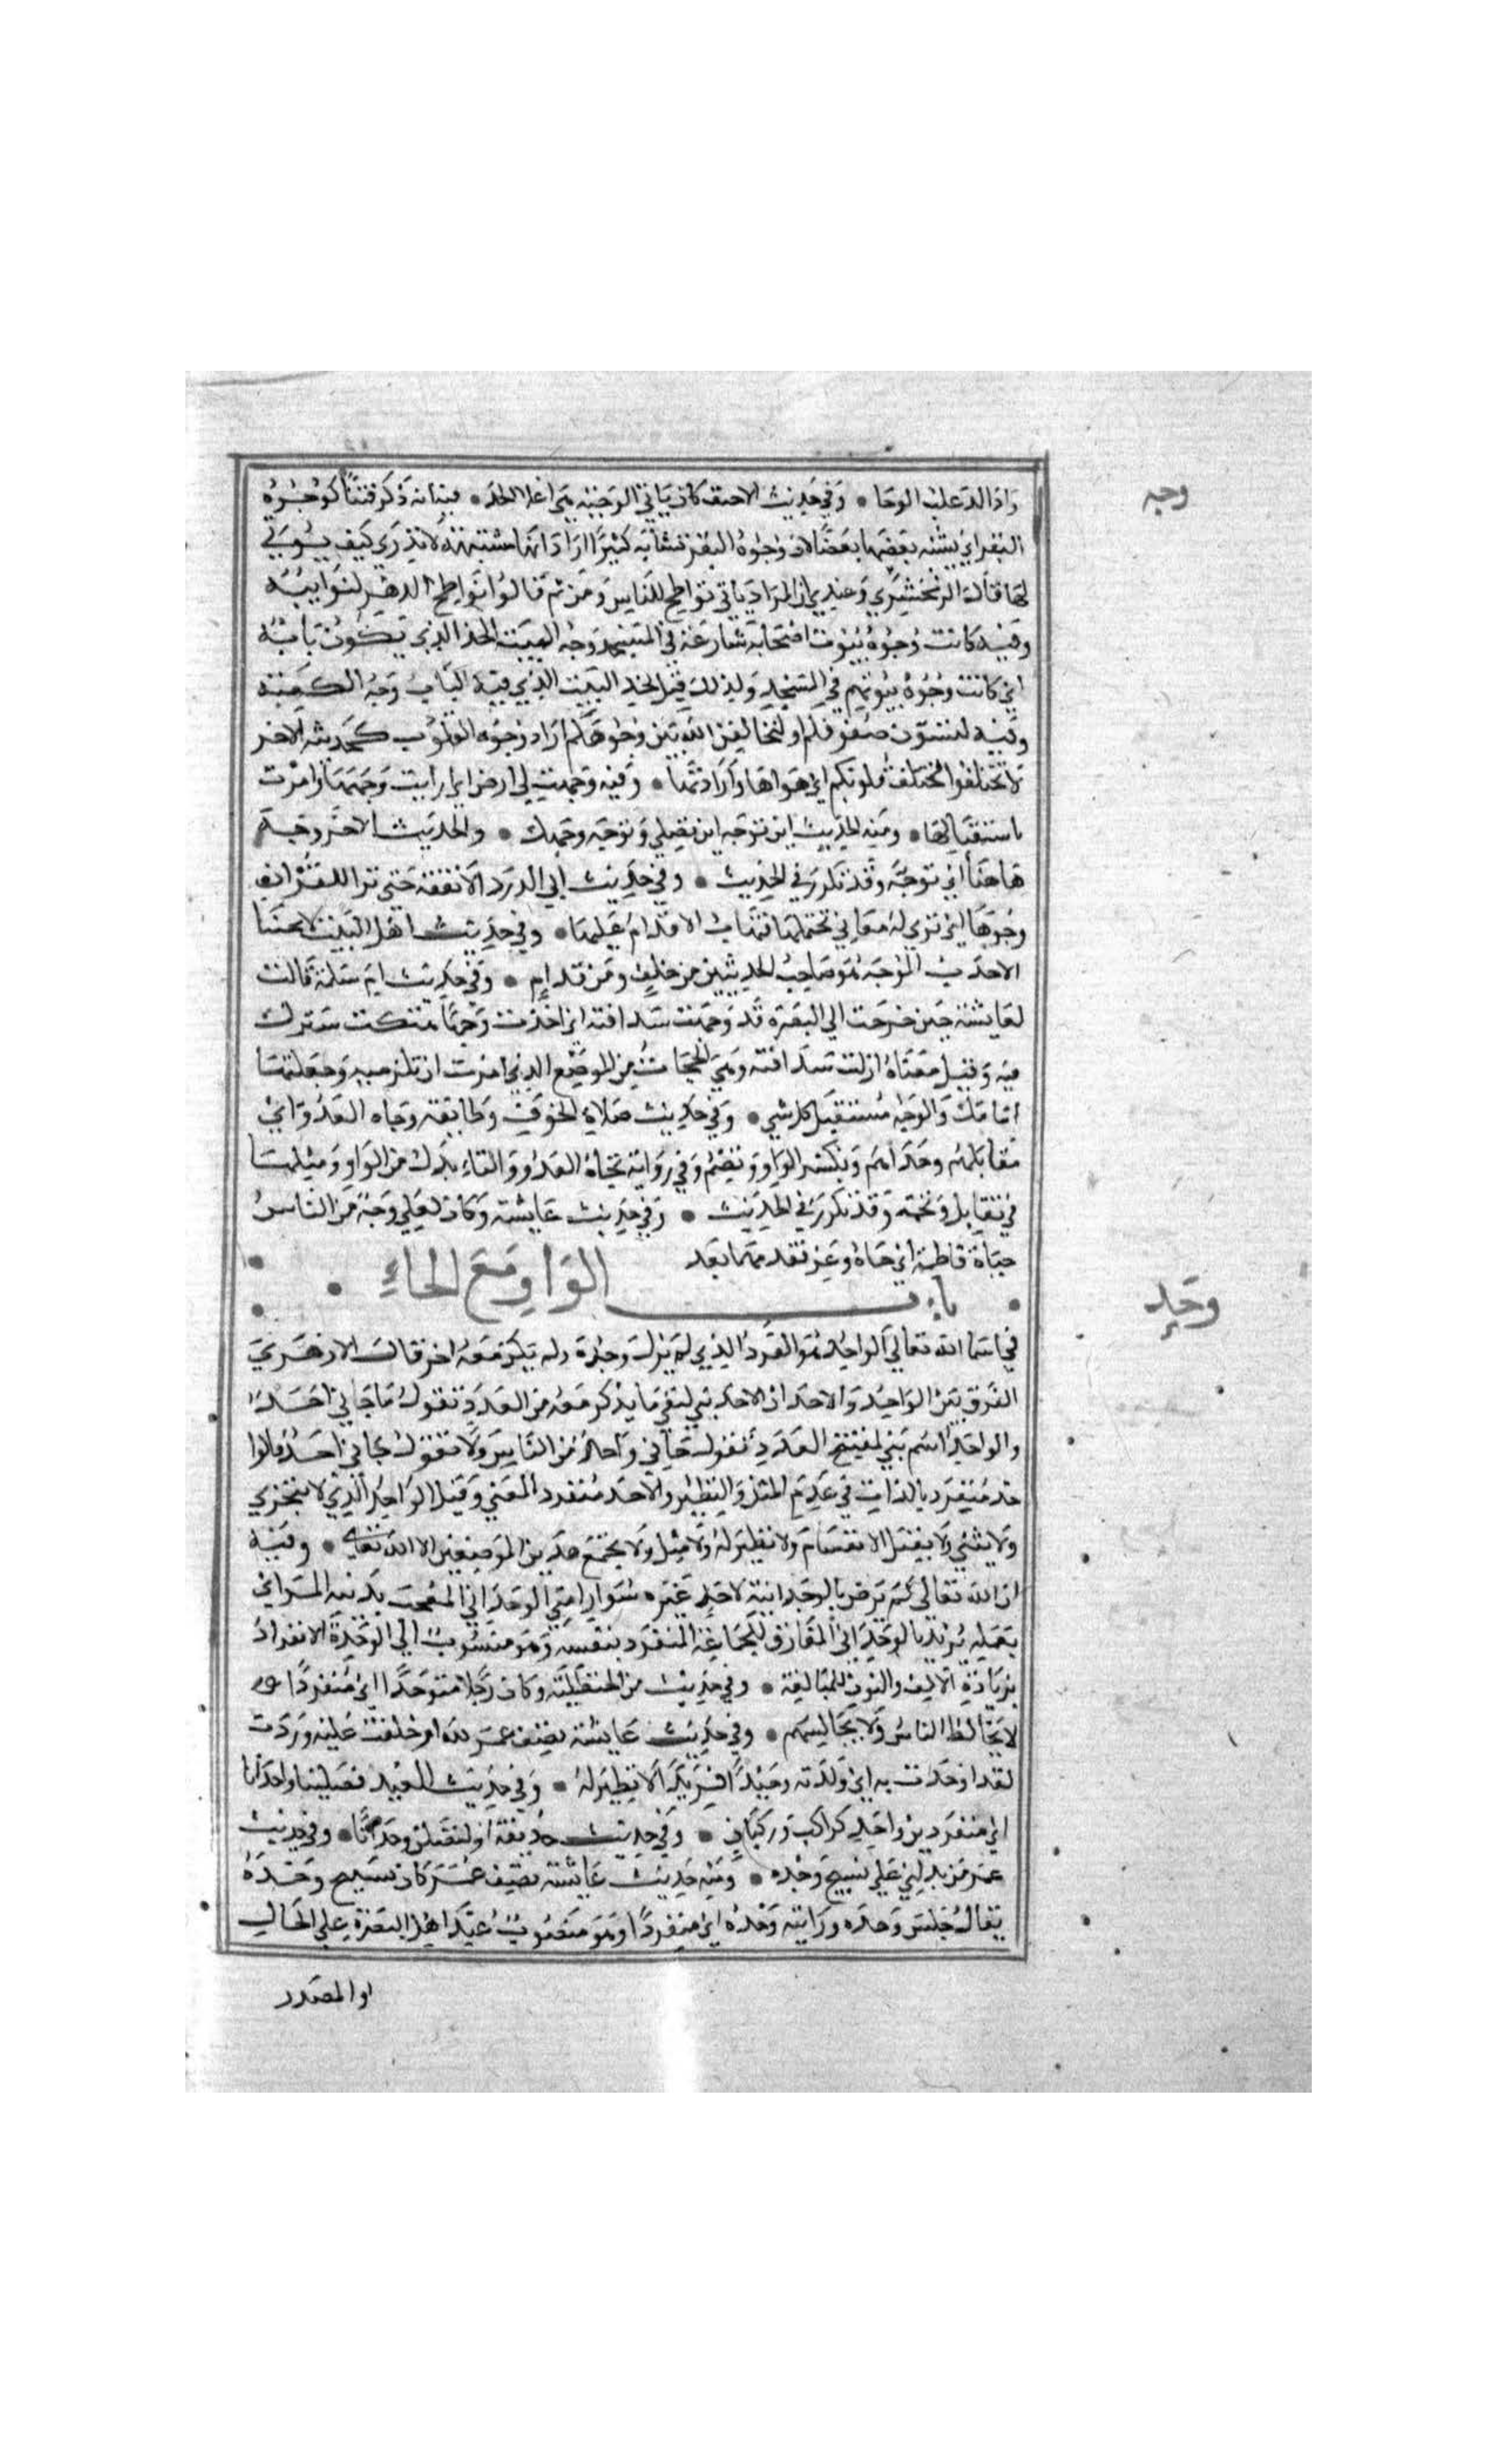 وجه
زاد الدعليه الوحا • وفي حديث الاحنف كان ناتي الوجنة هي اعلا الخد • فيه انه ذكر فتنا كوجوه
البقر اي يشبه بعضها بعضا لان وجوه البقر تتشابه كثيرا اراد انها مشتبهة لا يدري كيف يوتي
لها قاله الزمخشري وعندي ان المراد ياتي نواطح للناس ومن ثم قالوا نواطح الدهر لنوايبه
وفيه كانت وجوه بيوت اصحابه شارعة في المسجد وجه البيت الحد الذي يكون بابه
اي كانت وجوه بيوتهم في المسجد ولذلك قيل لحد البيت الذي فيه الباب وجه الكعبة
وفيه لتسون صفوفكم او ليخالفن الله بين وجوهكم اراد وجوه القلوب كحديثه الاخر
لا تختلفوا فتختلف قلوبكم اي هواها وارادتها • وفيه وجهت لي ارض اي رايت وجهها وامرت
باستقبالها • ومنه الحديث اين توجه اي تصلي وتوجه وجهك • والحديث الاخر وجه
هاهنا اي توجه وقد تكرر في الحديث • وفي حديث ابي الدرداء لا تفقه حتي تري للقران
وجوها اي تري له معاني تحتملها فتهاب الاقدام عليها • وفي حديث اهل البيت لا يحبنا
الاحدب الموجه هو صاحب الحدبتين من خلف ومن قدام • وفي حديث ام سلمة قالت
لعايشة حين خرجت الي البصرة قد وجهت سدافته اي اخذت وجها هتكت سترك
فيه وقيل معناه ازلت سدافته وهي الحجاب من الموضع الذي امرت ان تلزميه وجعلتها
امامك والوجه مستقبل كل شي • وفي حديث صلاة الخوف وطايفة وجاه العدو اي
مقابلهم وحذاهم وبكسر الواو وتضم وفي رواية تجاه العدو والتاء بدل من الواو ومثلها
في تقاة وتخمة وقد تكرر في الحديث • وفي حديث عايشة وكان لعلي وجه من الناس
حياة فاطمة اي جاه وعز فقدهما بعد
باب الواو مع الحاء
وحد
في اسما الله تعالي الواحد هو الفرد الذي لم يزل وحده ولم يكن معه اخر قال الازهري
الفرق بين الواحد والاحد ان الاحد بني لنفي ما يذكر معه من العدد تقول ما جاني احد
والواحد اسم بني لمفتتح العدد تقول جاني واحد من الناس ولا تقول جاني احد فالوا
حد منفرد بالذات في عدم المثل والنظير والاحد منفرد بالمعني وقيل الواحد الذي لا يتجزي
ولا يثني ولا يقبل الانقسام ولا نظير له ولا مثل ولا يجتمع هذين الوصفين الا الله تعالي • وفيه
ان الله تعالي لم يرض بالوحدانية لاحد غيره شرار امتي الوحداني المعجب بدينه المراي
بعمله يريد بالوحداني المفارق للجماعة المنفرد بنفسه وهو منسوب الي الوحدة الانفراد
بزيادة الالف والنون للمبالغة • وفي حديث ابن الحنظلية وكان رجلا متوحدا اي منفردا
لا يخالط الناس ولا يجالسهم • وفي حديث عايشة تصف عمر لله ام حفلت عليه ودرت
لقد اوحدت به اي ولدته وحيدا فريدا لا نظير له • وفي حديث العيد فصلينا وحدانا
اي منفردين واحد كراكب وركبان • وفي حديث حذيفة او لتصلن وحدانا • وفي حديث
عمر من يدلني علي نسيج وحده • ومنه حديث عايشة تصف عمر كان نسيج وحده
يقال جلس وحده ورايته وحده اي منفردا وهو منصوب عند اهل البصرة علي الحال
او المصدر